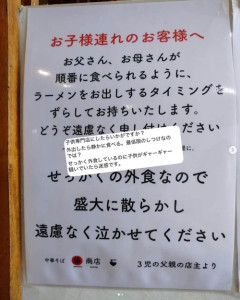 お子様連れのお客様へ
お父さん、お母さんが
順番に食べられるように、
ラーメンをお出しするタイミングを
ずらしてお持ちいたします。
どうぞ遠慮なく申し付けください
子供専門店にしたらいかがですか？
外出したら静かに食べる。最低限のしつけなの
では？
せっかく外食しているのに子供がギャーギャー
騒いでいたら迷惑です。
せっかくの外食なので
盛大に散らかし
遠慮なく泣かせてください
中華そば
商店
3児の父親の店主より